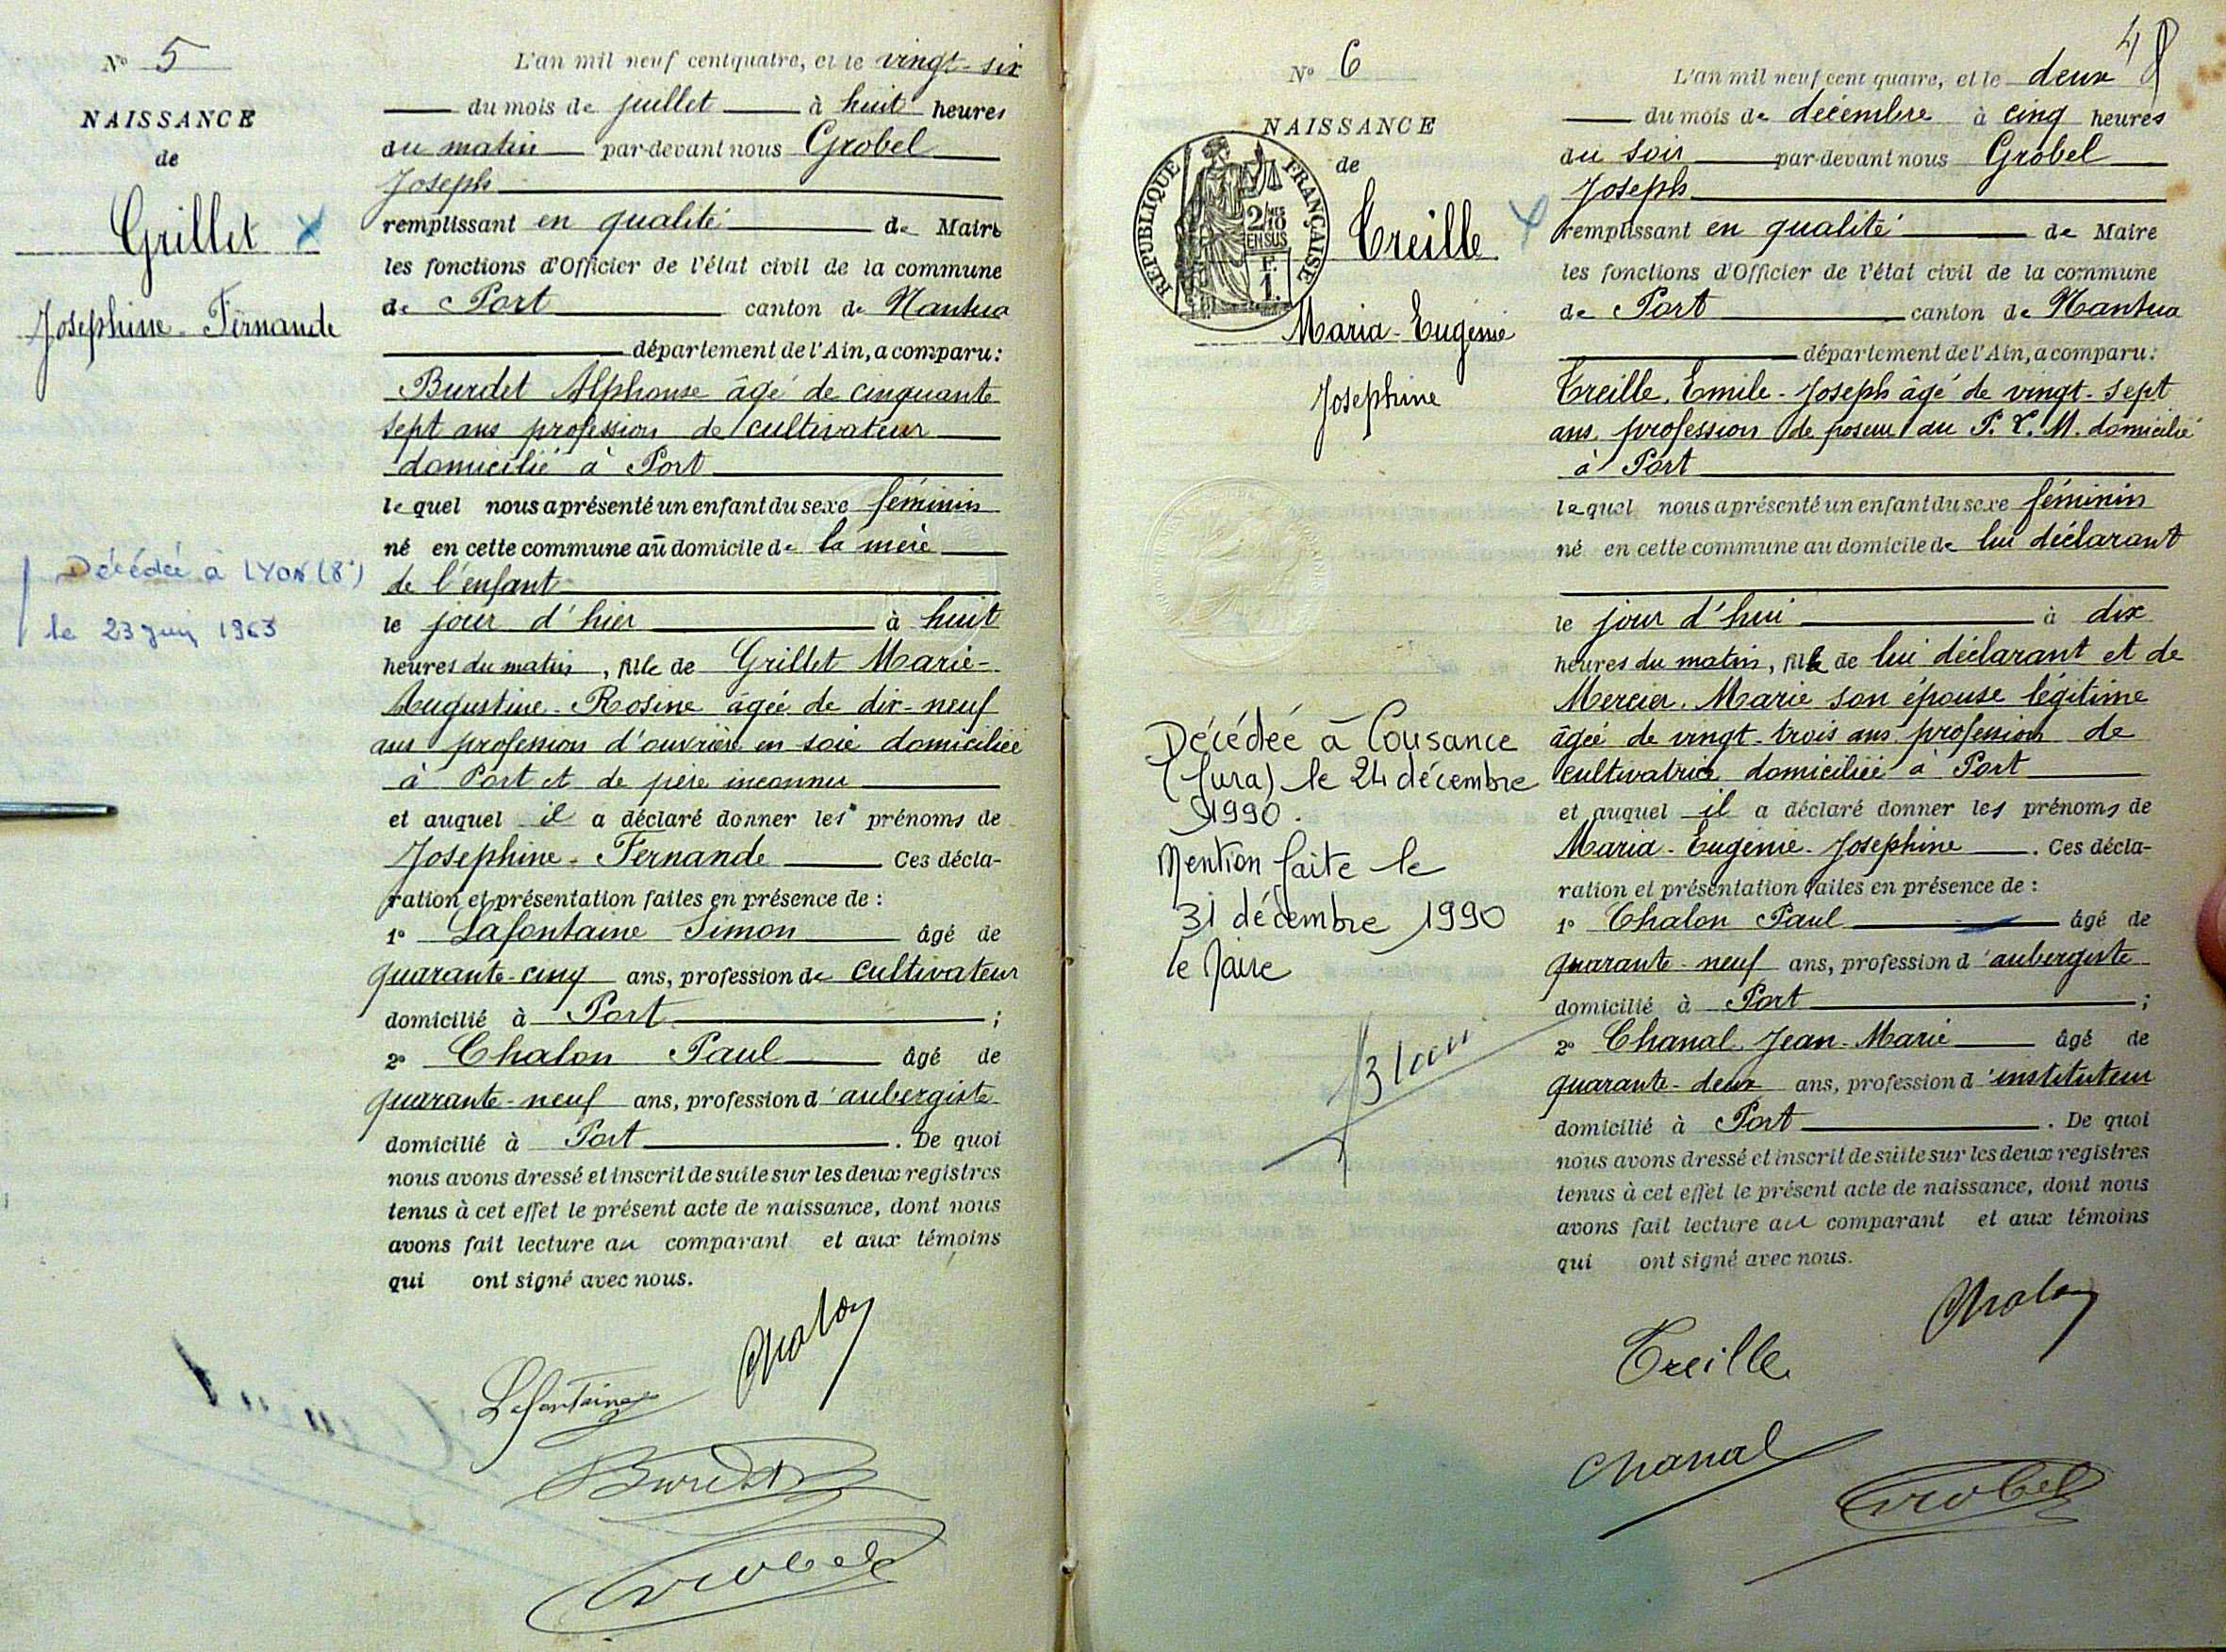 N° 5
NAISSANCE
de
Grillet
Josephine-Fernande
Décédée à LYON (8°)
le 23 juin 1963
L'an mil neuf cent quatre, et le vingt-six
du mois de juillet à huit heures
du matin par-devant nous Grobel
Joseph
remplissant en qualité de Maire
les fonctions d'Officier de l'état civil de la commune
de Port canton de Nantua
département de l'Ain, a comparu:
Burdet Alphonse âgé de cinquante
sept ans profession de cultivateur
domicilié à Port
lequel nous a présenté un enfant du sexe féminin
né en cette commune au domicile de la mère
de l'enfant
le jour d'hier à huit
heures du matin, fille de Grillet Marie-
Augustine-Rosine âgée de dix-neuf
ans profession d'ouvrière en soie domiciliée
à Port et de père inconnu
et auquel il a déclaré donner les prénoms de
Josephine-Fernande Ces décla-
ration et présentation faites en présence de :
1° Lafontaine Simon âgé de
quarante-cinq ans, profession de cultivateur
domicilié à Port ;
2° Chalon Paul âgé de
quarante-neuf ans, profession d'aubergiste
domicilié à Port . De quoi
nous avons dressé et inscrit de suite sur les deux registres
tenus à cet effet le présent acte de naissance, dont nous
avons fait lecture au comparant et aux témoins
qui ont signé avec nous.
Chalon
Lafontaine
Burdet
Grobel
48
N° 6
NAISSANCE
de
REPUBLIQUE FRANÇAISE
2/10 MES
EN SUS
F.
1.
Treille
Maria-Eugénie
Josephine
Décédée à Cousance
(Jura) le 24 décembre
1990.
Mention faite le
31 décembre 1990
le Maire
L'an mil neuf cent quatre, et le deux
du mois de décembre à cinq heures
du soir par-devant nous Grobel
Joseph
remplissant en qualité de Maire
les fonctions d'Officier de l'état civil de la commune
de Port canton de Nantua
département de l'Ain, a comparu:
Treille, Emile-Joseph âgé de vingt-sept
ans, profession de poseur au P.L.M. domicilié
à Port
lequel nous a présenté un enfant du sexe féminin
né en cette commune au domicile de lui déclarant
le jour d'hui à dix
heures du matin, fille de lui déclarant et de
Mercier Marie son épouse légitime
âgée de vingt-trois ans profession de
cultivatrice domiciliée à Port
et auquel il a déclaré donner les prénoms de
Maria-Eugénie-Josephine . Ces décla-
ration et présentation faites en présence de :
1° Chalon Paul âgé de
quarante-neuf ans, profession d'aubergiste
domicilié à Port ;
2° Chanal Jean-Marie âgé de
quarante-deux ans, profession d'instituteur
domicilié à Port . De quoi
nous avons dressé et inscrit de suite sur les deux registres
tenus à cet effet le présent acte de naissance, dont nous
avons fait lecture au comparant et aux témoins
qui ont signé avec nous.
Chalon
Treille
Chanal
Grobel